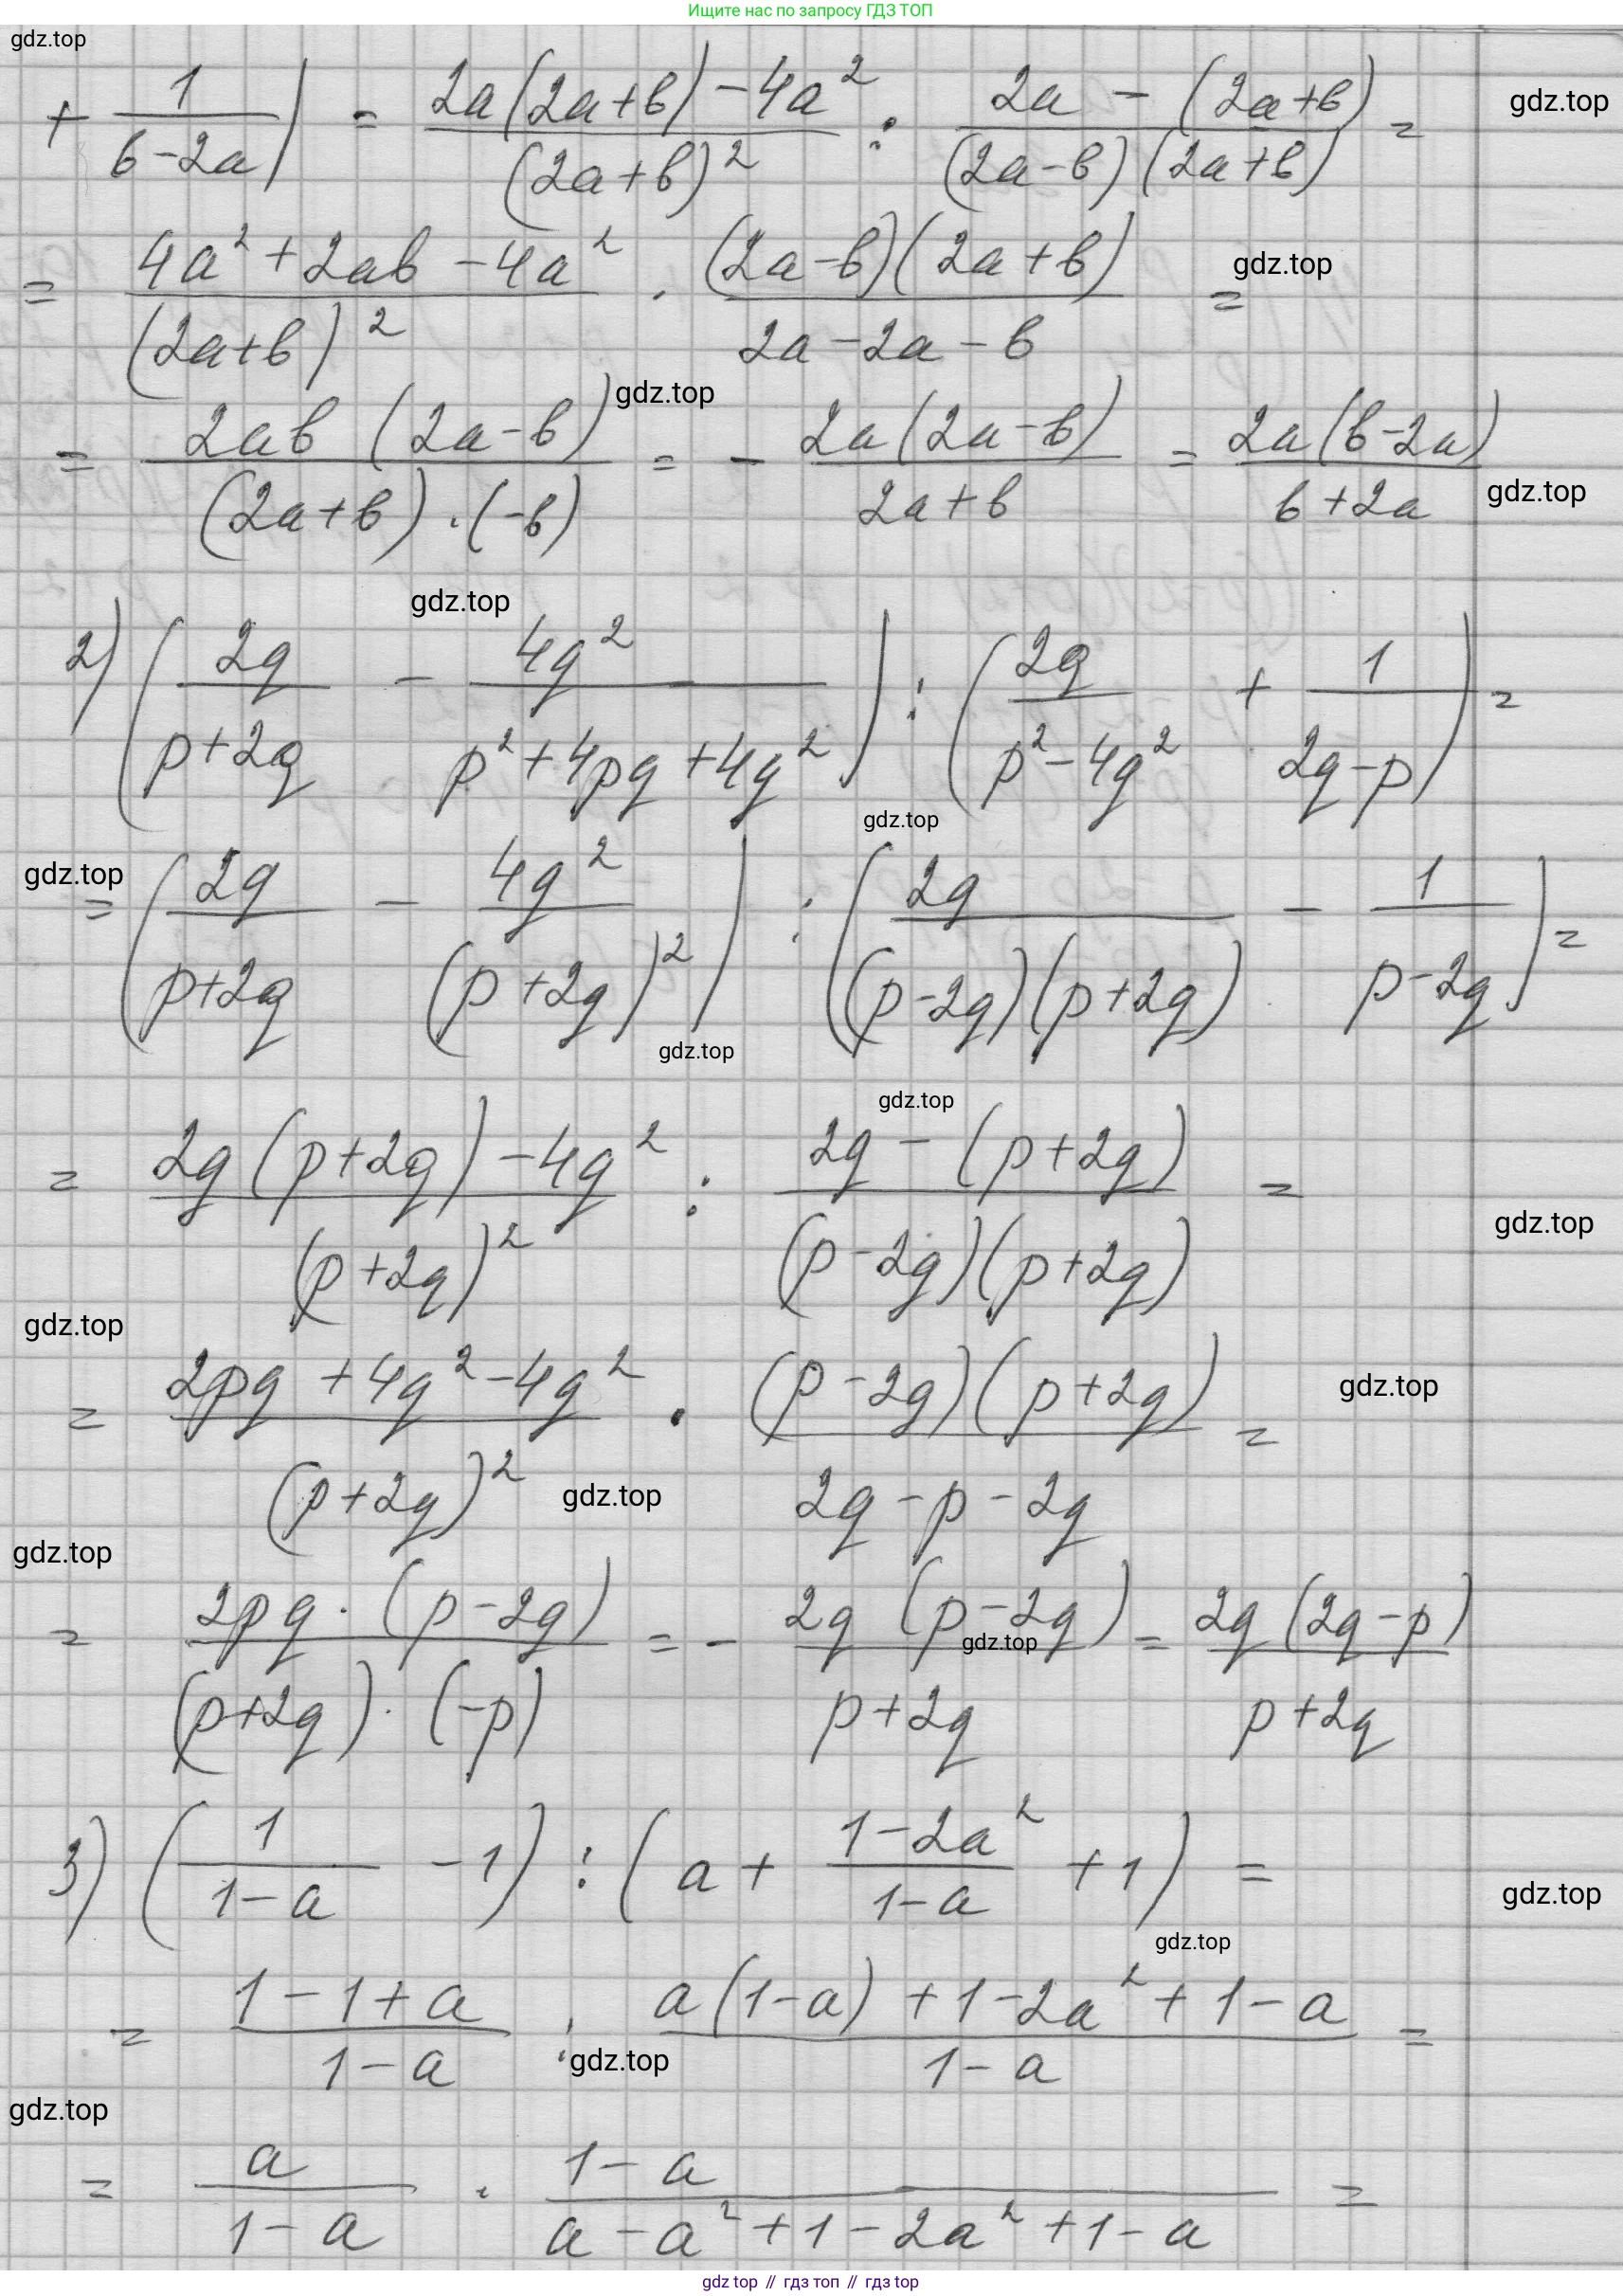 Ищите нас по запросу ГДЗ ТОП
gdz.top
+ 1/(b-2a)) = (2a(2a+b)-4a²)/(2a+b)² : (2a-(2a+b))/((2a-b)(2a+b)) =
gdz.top
= (4a²+2ab-4a²)/(2a+b)² · ((2a-b)(2a+b))/(2a-2a-b) =
gdz.top
gdz.top
= (2ab(2a-b))/((2a+b)·(-b)) = - (2a(2a-b))/(2a+b) = (2a(b-2a))/(b+2a)
gdz.top
gdz.top
2) (2q/(p+2q) - 4q²/(p²+4pq+4q²)) : (2q/(p²-4q²) + 1/(2q-p)) =
gdz.top
gdz.top
= (2q/(p+2q) - 4q²/(p+2q)²) : (2q/((p-2q)(p+2q)) - 1/(p-2q)) =
gdz.top
gdz.top
= (2q(p+2q)-4q²)/(p+2q)² : (2q-(p+2q))/((p-2q)(p+2q)) =
gdz.top
gdz.top
= (2pq+4q²-4q²)/(p+2q)² · ((p-2q)(p+2q))/(2q-p-2q) =
gdz.top
gdz.top
gdz.top
= (2pq·(p-2q))/((p+2q)·(-p)) = - (2q(p-2q))/(p+2q) = (2q(2q-p))/(p+2q)
gdz.top
3) (1/(1-a) - 1) : (a + (1-2a²)/(1-a) + 1) =
gdz.top
gdz.top
= (1-1+a)/(1-a) : (a(1-a)+1-2a²+1-a)/(1-a) =
gdz.top
gdz.top
= a/(1-a) · (1-a)/(a-a²+1-2a²+1-a) =
gdz top // гдз топ // гдз top